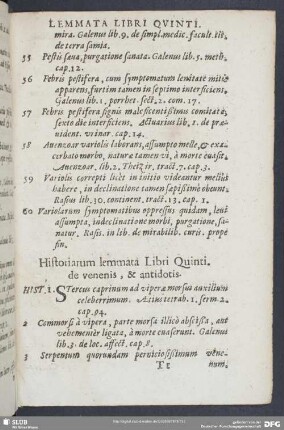 LEMMATA LIBRI QVINTI.
mira. Galenus lib. 9. de simpl. medic. facult. tit.
de terra samia.
55 Pestis sana, purgatione sanata. Galenus lib. 5. meth.
cap. 12.
56 Febris pestifera, cum symptomatum lenitate mitis
apparens, furtim tamen in septimo interficiens,
Galenus lib. 1. porrhet. sect. 2. com. 17.
57 Febris pestifera signis maleficentissimus comitata,
sexto die interficiens, Actuarius lib. 2. de præ
uident. vrinar. cap. 14.
58 Auenzoar variolis laborans, assumpto melle, & exa
cerbato morbo, natura tamen vi, à morte euasit.
Auenzoar. lib. 2. Theizir, tract. 7. cap. 3.
59 Variolis correpti licèt in initio videantur meliùs
habere, in declinatione tamen sæpissimè obeunt.
Rasius lib. 10. continent. tract. 13. cap. 1.
60 Variolarum symptomatibus oppressus quidam, leui
assumpta, in declinatione morbi, purgatione, sa-
natur. Rasis. in lib. de mirabilib. curis. prope
fin.
Historiarum lemmata Libri Quinti,
de venenis, & antidotis.
HIST. 1. STercus caprinum ad viperæ morsus auxilium
celeberrimum. Aetius tetrab. 1. serm. 2.
cap. 94.
2 Commorsi à vipera, parte morsa illicò abscissa, aut
vehementer ligata, à morte euaserunt. Galenus
lib. 3. de loc. affect. cap. 8.
3 Serpentum quorundam perniciosissimum vene-
Tt num.
SLUB
Wir führen Wissen.
Deutsche Forschungsgemeinschaft